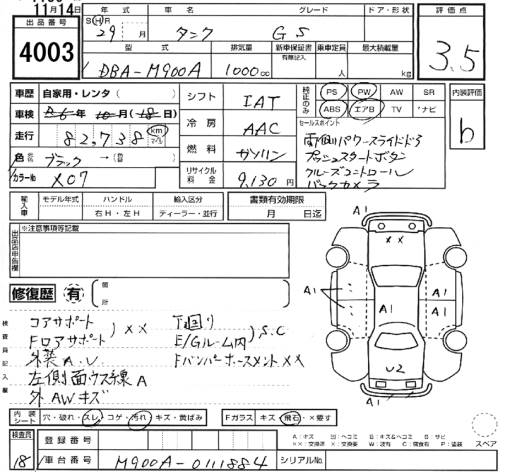 11月14日
出品番号
4003
年式 車名 グレード ドア・形状 評価点
S H R 29 月 タンク GS
3.5
型式 排気量 新車保証書 乗車定員 最大積載量
有無記入
DBA-M900A 1000cc 人 kg
車歴 自家用・レンタ シフト IAT 純正のみ PS PW AW SR 内装評価
車検 10月 18日 ABS エアB TV ナビ b
走行 82,738 km マイル 冷房 AAC セールスポイント
色 ブラック → (替) 燃料 ガソリン 両側パワースライドドア
プッシュスタートボタン
カラーNo X07 リサイクル料金 9,130円 クルーズコントロール
バックカメラ
輸入車 モデル年式 ハンドル 輸入区分 書類有効期限
右H・左H ディーラー・並行 月 日迄
出品店申告欄 ※注意事項等記載
修復歴 有 箇所
検査員記入欄
コアサポート 下回り
Fロアサポート ××  E/Gルーム内 S.C
外装A.U FバンパーホースメントXX
左側面ウス線A
外AWキズ
A1
××
A1
A1
A1
A1
U2
A1
内装シート 穴・破れ・スレ・コゲ・汚れ・キズ・黄ばみ Fガラス キズ・飛石・×要す
A:キズ U:ヘコミ B:キズ&ヘコミ S:サビ
××:交換済 X:要交換 W:波有 C:腐食有 P:塗装
スペア
検査員 18
登録番号
車台番号 M900A-0111884 シリアルNo.